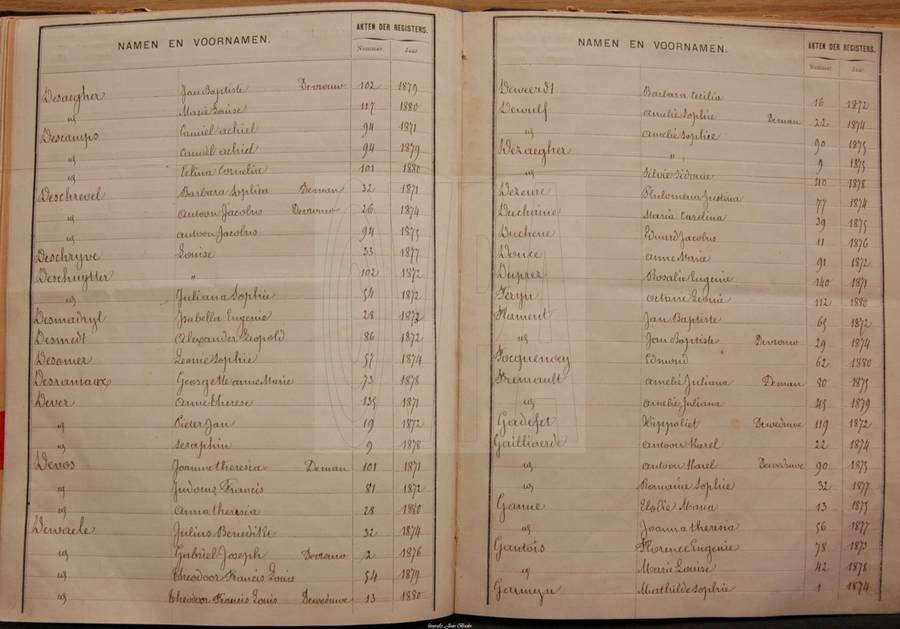 NAMEN EN VOORNAMEN. AKTEN DER REGISTERS.
Nummer. Jaar.
Desaegher Jan Baptiste Devrouw 102 1879
id Marie Louise 117 1880
Descamps Camiel achiel 94 1871
id Camiel achiel 94 1879
id Celina Cornelia 101 1880
Deschrevel Barbara Sophia Deman 32 1871
id Antoon Jacobus Devrouw 26 1874
id Antoon Jacobus 94 1875
Deschryve Louise 33 1877
Deschuytter " 102 1872
id Juliana Sophie 54 1872
Desmadryl Isabella Eugenie 28 1873
Desmedt Alexander Leopold 86 1872
Desomer Leonie Sophie 57 1874
Desramaux Georgette anne Marie 73 1878
Dever Anne therese 135 1871
id Pieter Jan 19 1872
id Seraphin 9 1878
Devos Joanna theresia Deman 101 1871
id Judocus Francis 81 1872
id anna theresia 28 1880
Dewaele Julius Benedikt 32 1874
id Gabriel Joseph Devrouw 2 1876
id Theodoor Francis Louis 54 1879
id Theodoor Francis Louis Deweduwe 13 1880
NAMEN EN VOORNAMEN. AKTEN DER REGISTERS.
Nummer. Jaar.
Deweerdt Barbara Cecilia 16 1872
Dewulf Amelie Sophie Deman 22 1874
id Amelie Sophie 90 1875
Dezaegher " 9 1875
id Silvie Sidonie 110 1878
Dezeure Philomena Justina 77 1874
Duchaine Maria Carolina 39 1875
Duchene Eduard Jacobus 11 1876
anne Marie 91 1872
Duprez Rosalie Eugenie 140 1871
Feryn Leonie 112 1880
Flament Jan Baptiste 65 1872
id Jan Baptiste Devrouw 29 1874
Focquenoey Edmond 62 1880
Fremault Amelie Juliana Deman 80 1875
id Amelie Juliana 45 1879
Gadefet Hippoliet Deweduwe 119 1872
Gailliaerde Antoon Karel 22 1874
id Antoon Karel Deweduwe 90 1875
id Romanie Sophie 32 1877
Ganne Elodie Maria 13 1875
id Joanna theresia 56 1877
Gantois Florence Eugenie 78 1873
id Marie Louise 42 1878
Germyn Mathilde Sophie 1 1874